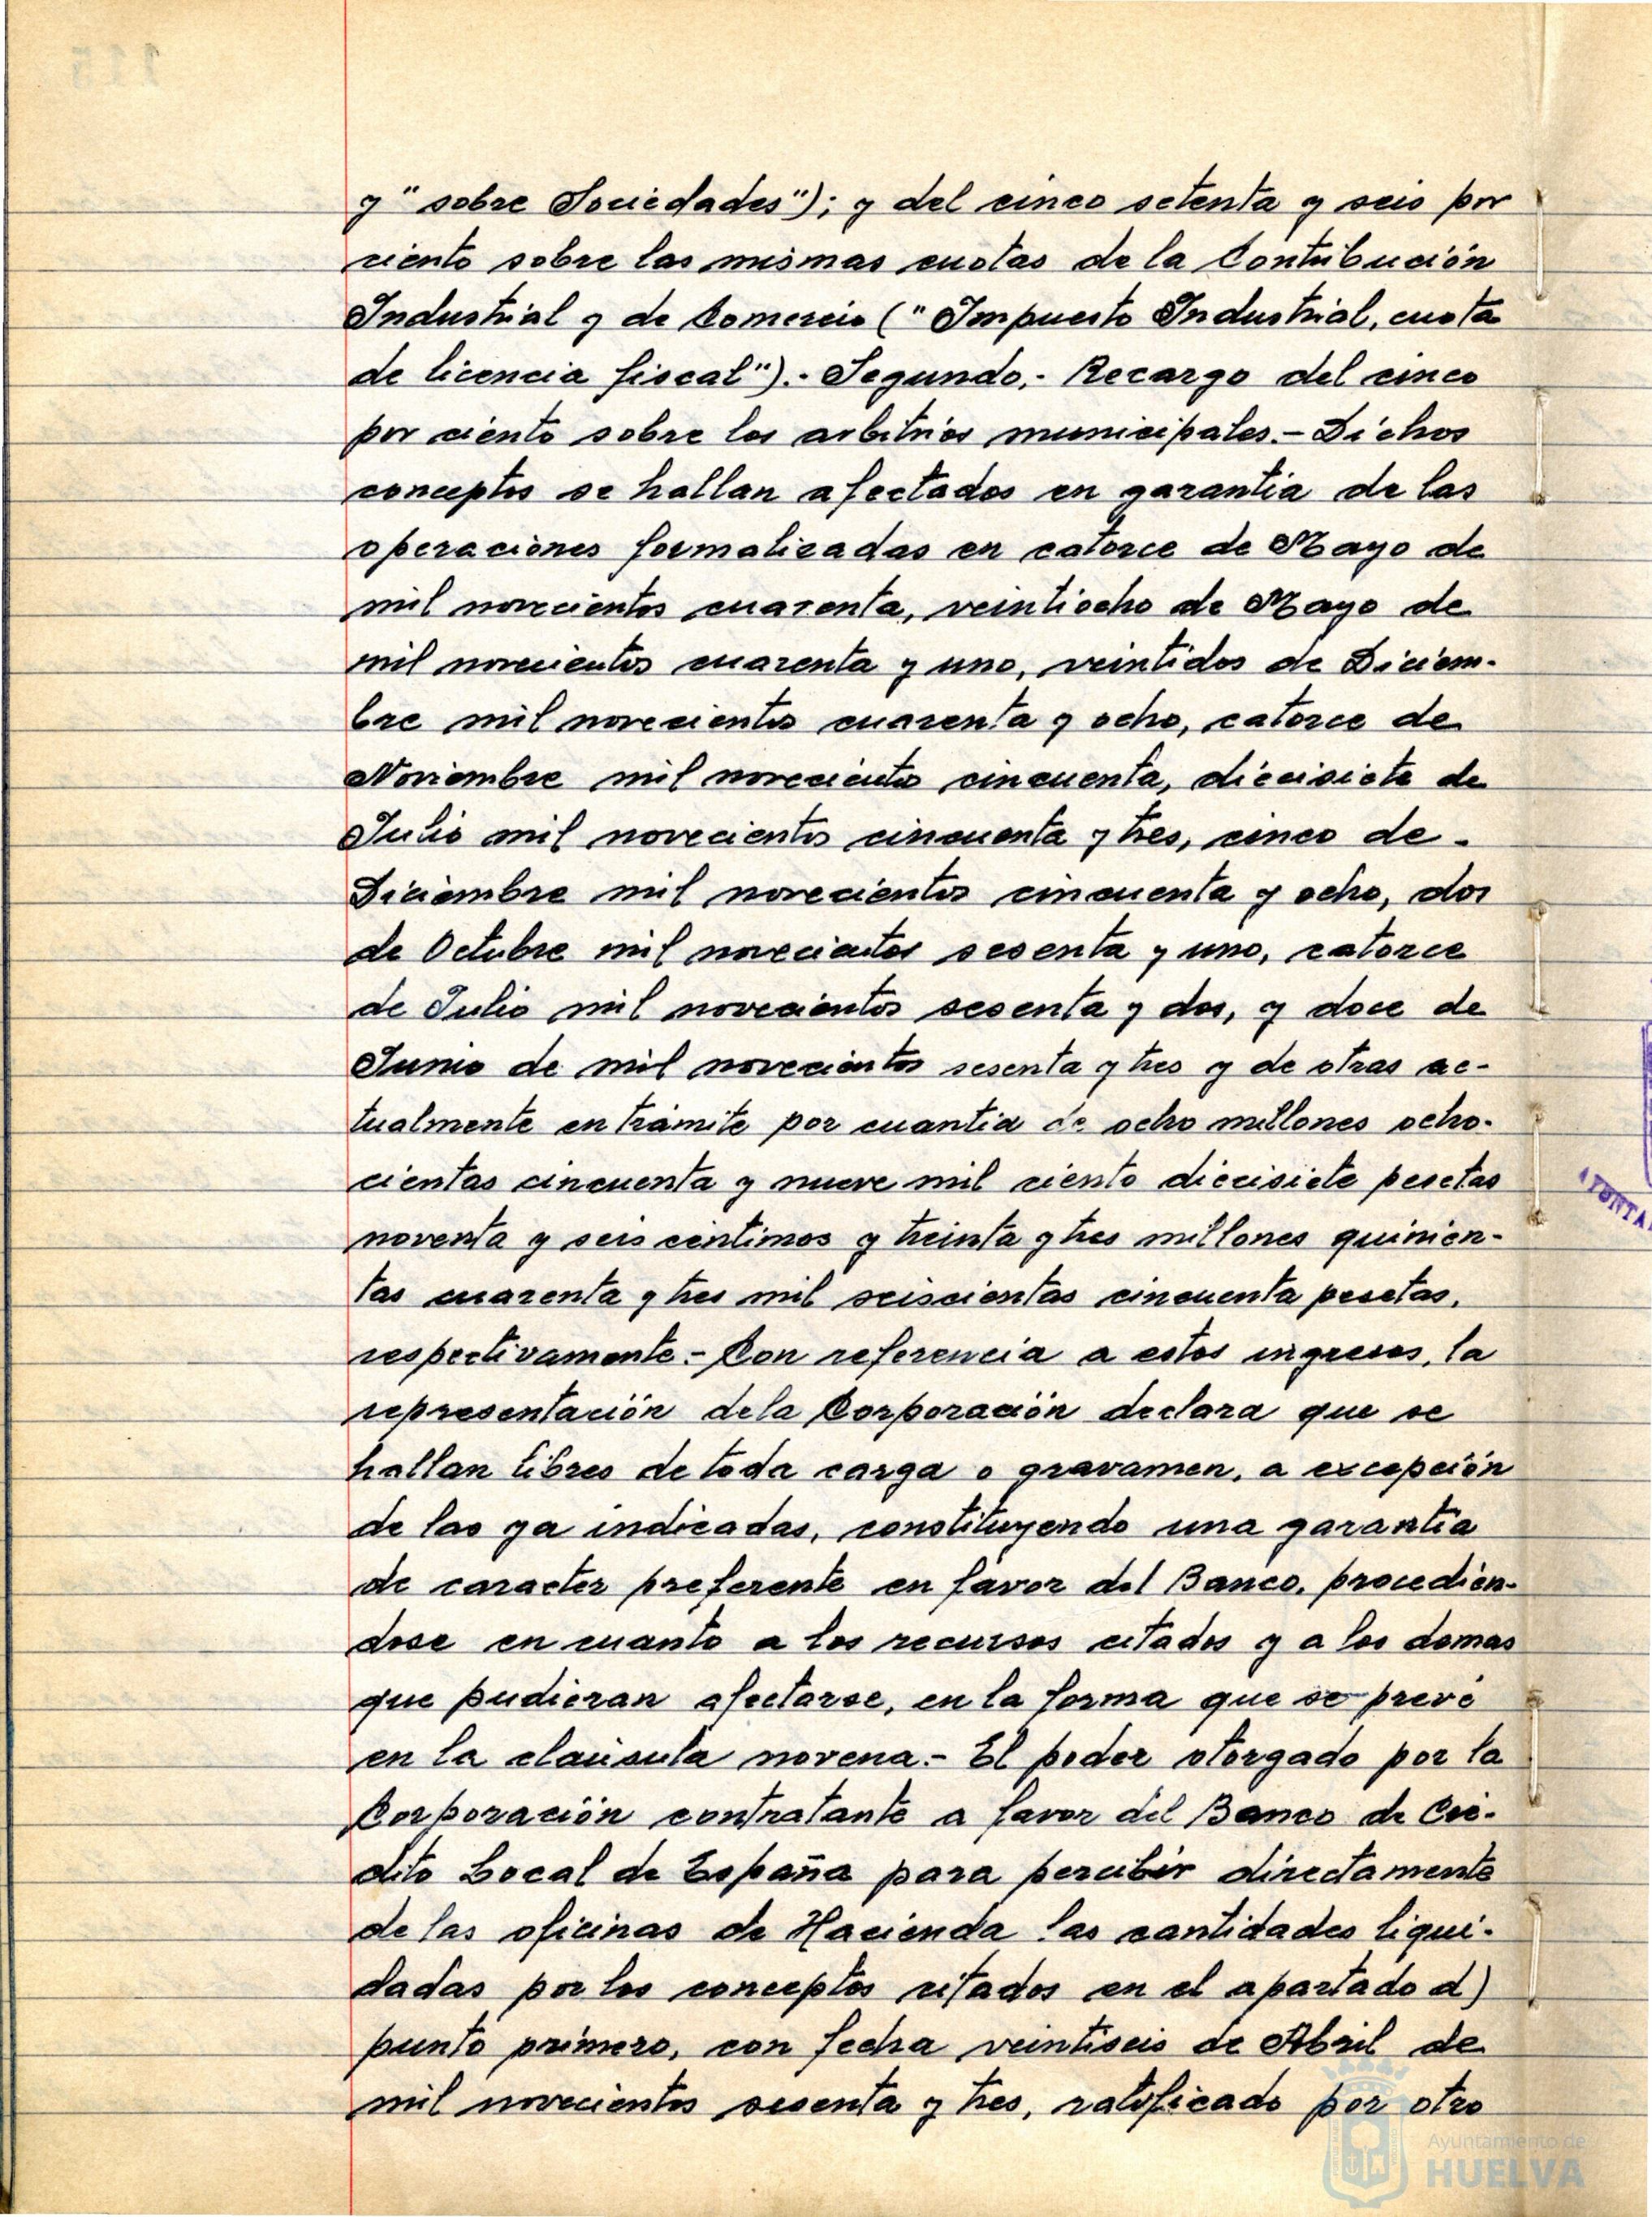 y "sobre Sociedades"); y del cinco setenta y seis por
ciento sobre las mismas cuotas de la Contribución
Industrial y de Comercio ("Impuesto Industrial, cuota
de licencia fiscal").- Segundo.- Recargo del cinco
por ciento sobre los arbitrios municipales.- Dichos
conceptos se hallan afectados en garantia de las
operaciones formalizadas en catorce de Mayo de
mil novecientos cuarenta, veintiocho de Mayo de
mil novecientos cuarenta y uno, veintidos de Diciem-
bre mil novecientos cuarenta y ocho, catorce de
Noviembre mil novecientos cincuenta, diecisiete de
Julio mil novecientos cincuenta y tres, cinco de -
Diciembre mil novecientos cincuenta y ocho, dos
de Octubre mil novecientos sesenta y uno, catorce
de Julio mil novecientos sesenta y dos, y doce de
Junio de mil novecientos sesenta y tres y de otras ac-
tualmente en trámite por cuantia de ocho millones ocho-
cientas cincuenta y nueve mil ciento diecisiete pesetas
noventa y seis centimos y treinta y tres millones quinien-
tas cuarenta y tres mil seiscientas cincuenta pesetas,
respectivamente.- Con referencia a estos ingresos, la
representación de la Corporación declara que se
hallan libres de toda carga o gravamen, a excepción
de las ya indicadas, constituyendo una garantia
de caracter preferente en favor del Banco, procedien-
dose en cuanto a los recursos citados y a los demas
que pudieran afectarse, en la forma que se prevé
en la claúsula novena.- El poder otorgado por la
Corporación contratante a favor del Banco de Cré-
dito Local de España para percibir directamente
de las oficinas de Hacienda las cantidades liqui-
dadas por los conceptos citados en el apartado d)
punto primero, con fecha veintiseis de Abril de
mil novecientos sesenta y tres, ratificado por otro
Ayuntamiento de
HUELVA